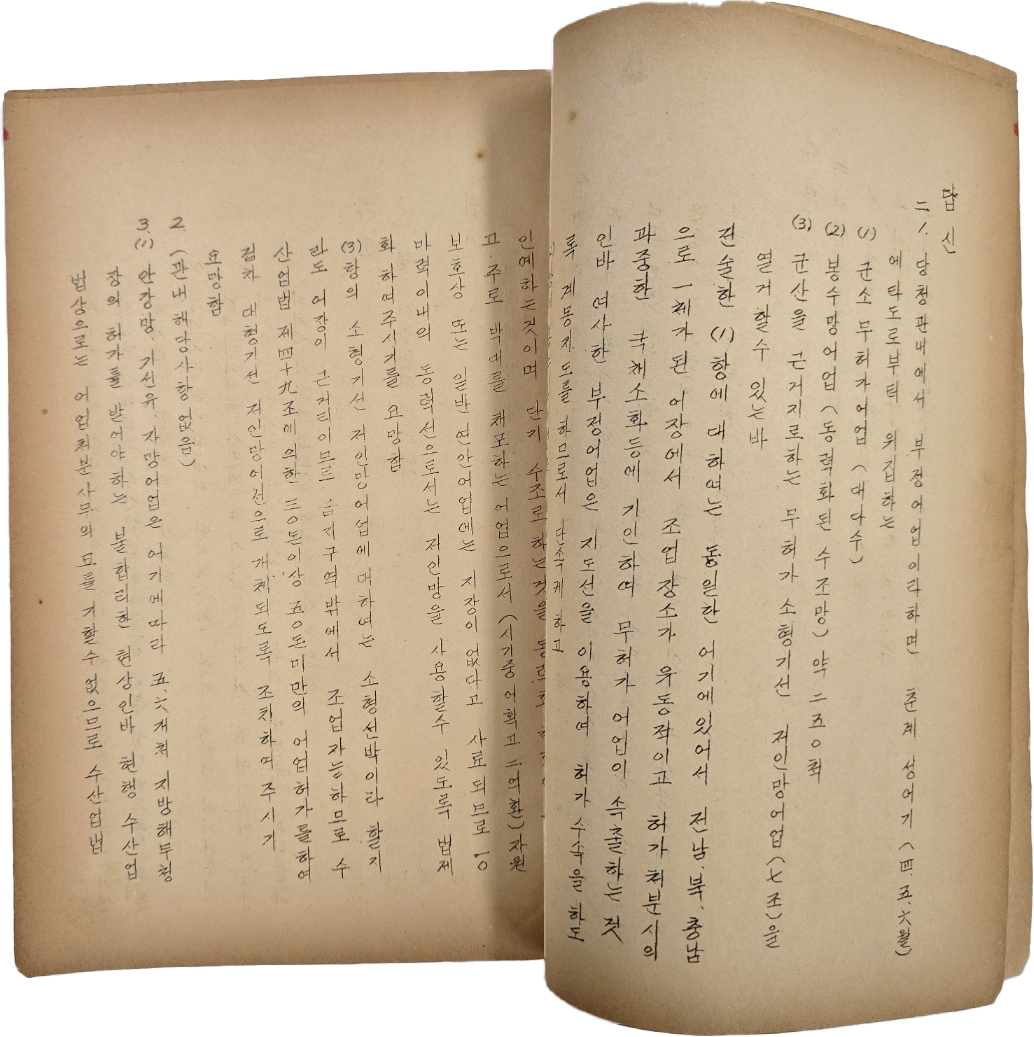 답신
二 1. 당청관내에서 부정어업이라하면 춘계 성어기 (四.五.六월)
에 타도로부터 위집하는
(1) 군소 무허가어업 (대다수)
(2) 봉수망어업 (동력화된 수조망) 약 二五○척
(3) 군산을 근거지로하는 무허가 소형기선 저인망어업 (七조)을
열거할수 있는바
전술한 (1)항에 대하여는 동일한 어기에있어서 전남.북.충남
으로 一체가된 어장에서 조업장소가 유동적이고 허가처분시의
과중한 국채소화등에 기인하여 무허가어업이 속출하는 것
인바 여사한 부정어업은 지도선을 이용하여 허가수속을 하도
록 계몽지도를 하므로서 단속케 하고
인예하는것이며 단기 수조로 하는것을 동력화
고 주로 박대를 채포하는 어업으로서 (시기중 어획고 二억환) 자원
보호상 또는 일반 연안어업에는 지장이 없다고 사료되므로 一○
마력이내의 동력선으로서는 저인망을 사용할수 있도록 법제
화 하여주시기를 요망함
(3)항의 소형기선 저인망어업에 대하여는 소형선박이라 할지
라도 어장이 근거리이므로 금지구역밖에서 조업가능하므로 수
산업법 제四十九조에의한 三○톤이상 五○톤미만의 어업허가를하여
점차 대형기선 저인망어선으로 개체되도록 조치하여 주시기
요망함
2. (관내 해당사항없음)
3. (1) 안강망. 기선유자망어업은 어기에따라 五.六개처 지방해무청
장의 허가를 받어야하는 불합리한 현상인바 현행 수산업
법상으로는 어업처분사무의 묘를 기할수 없으므로 수산업법